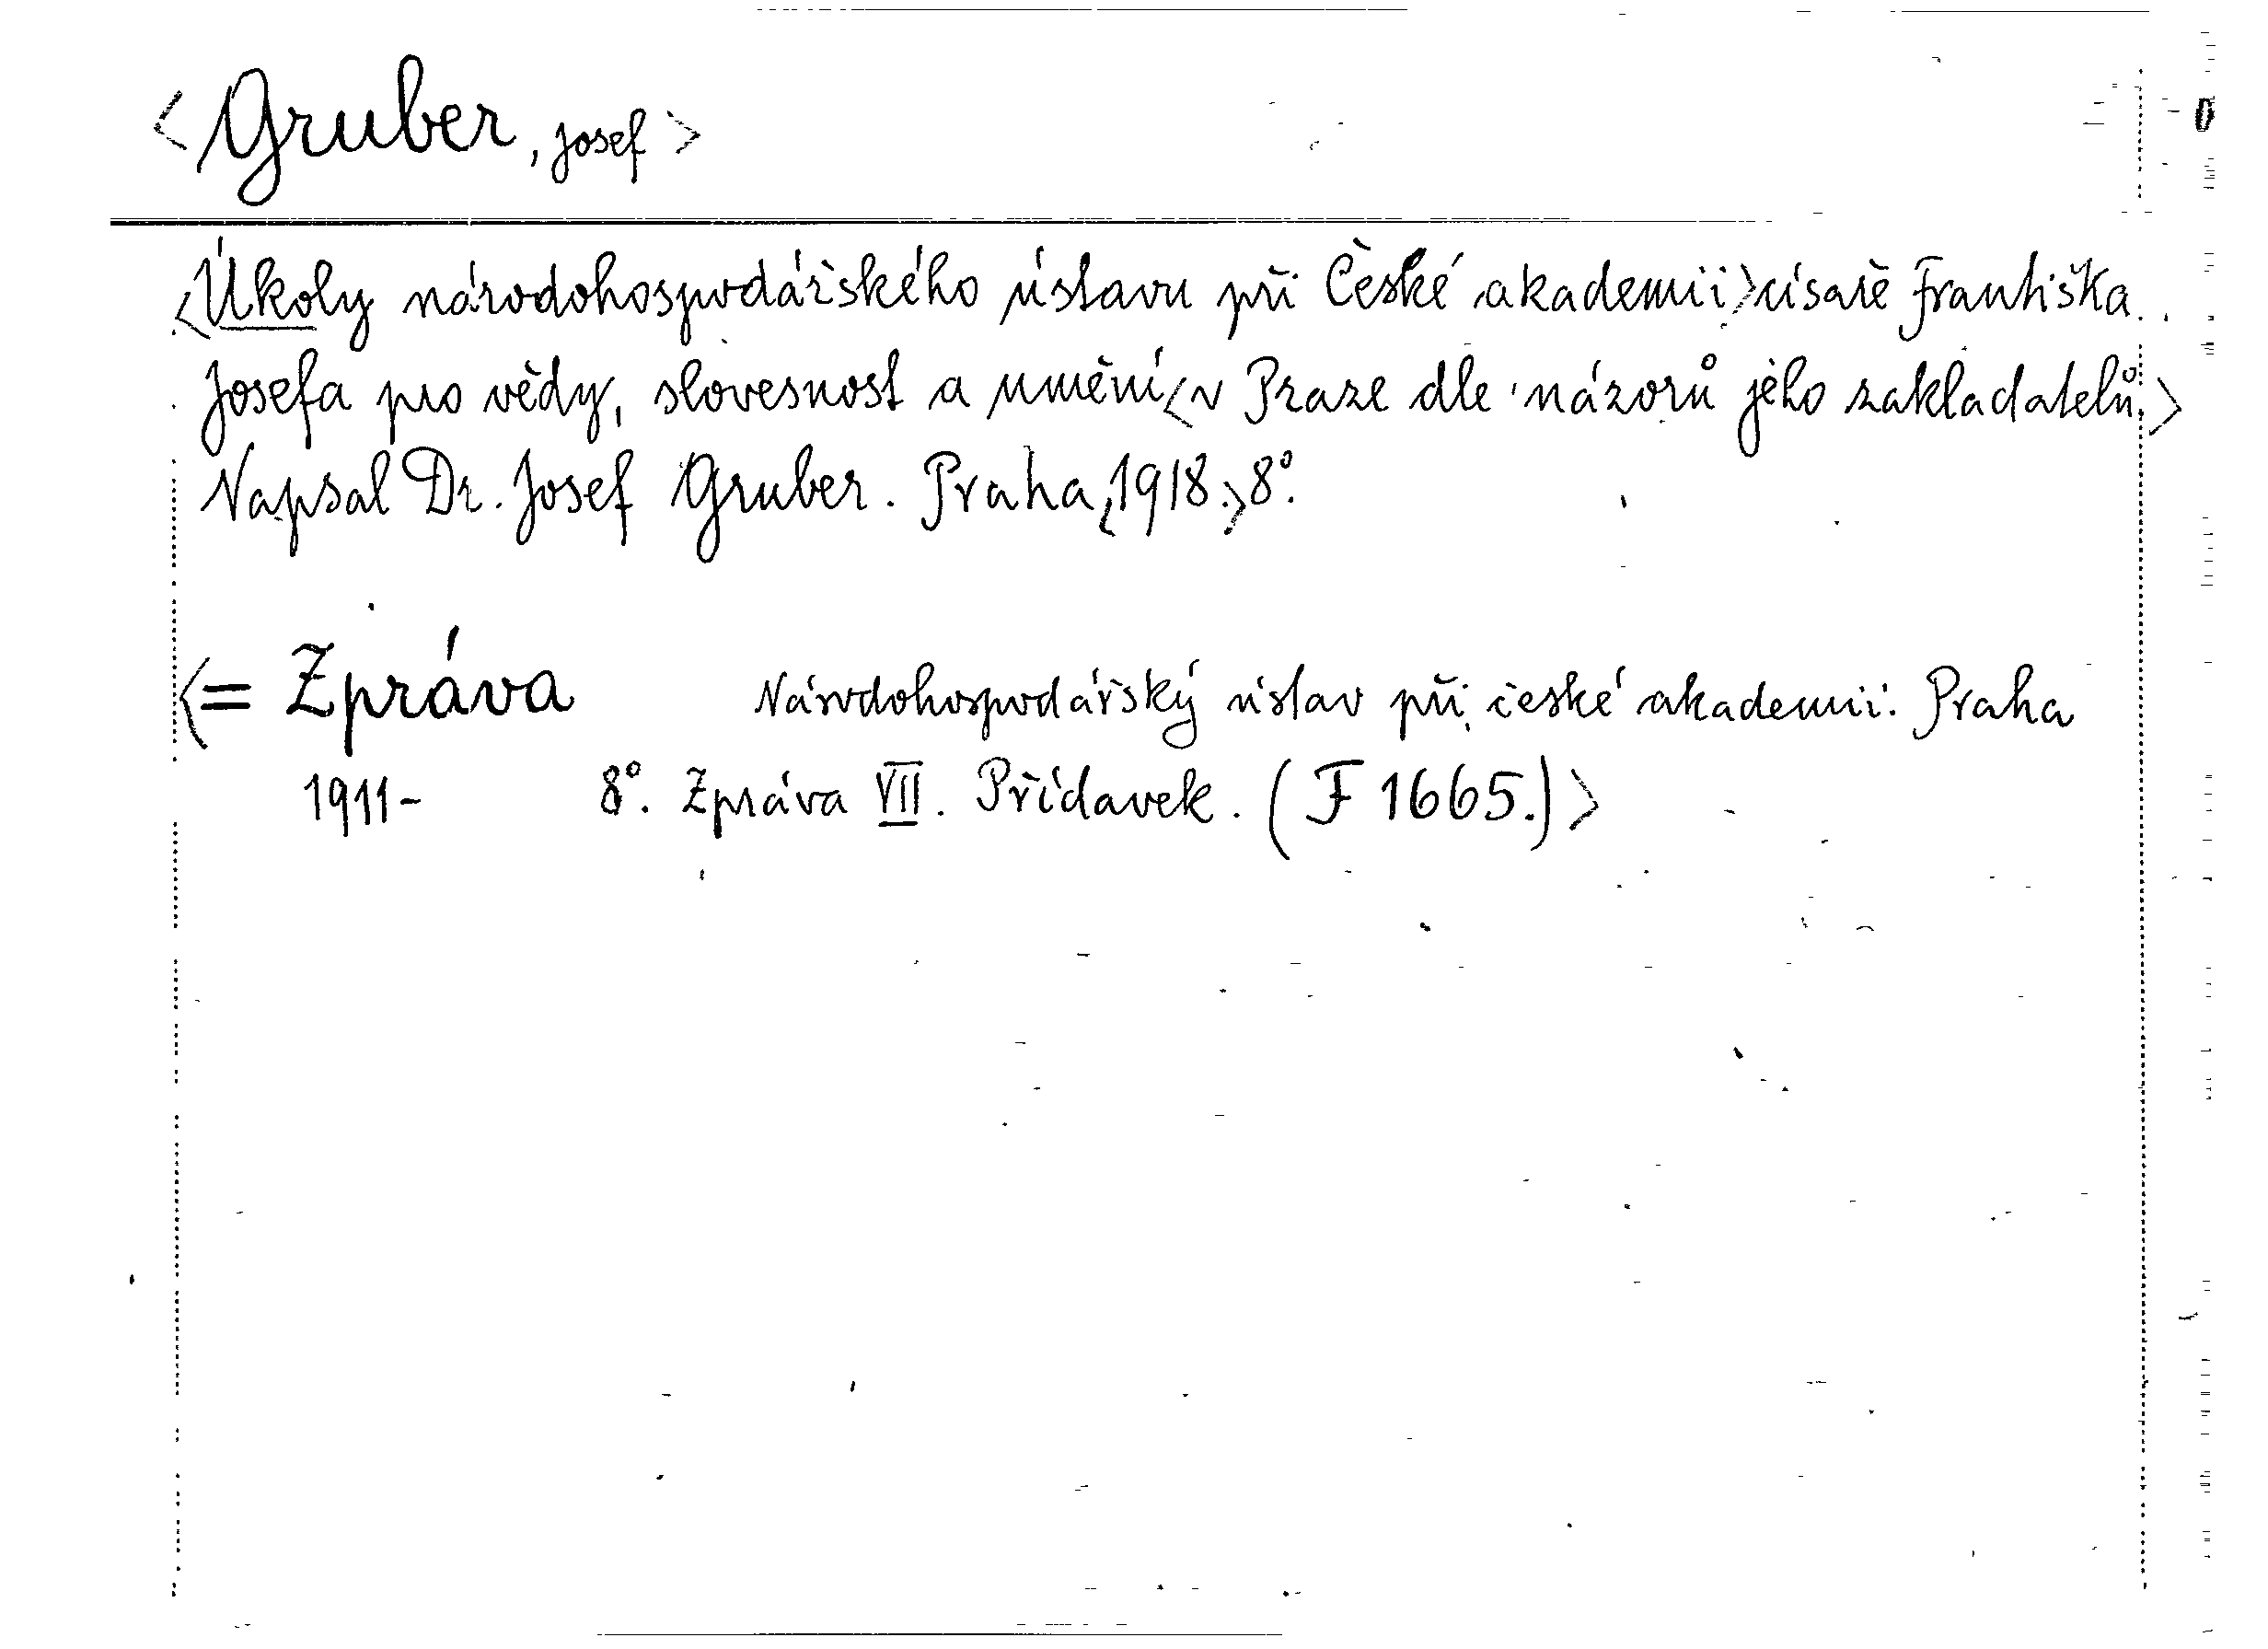 <Gruber, Josef>
<Úkoly národohospodářského ústavu při České akademii> císaře Františka
Josefa pro vědy, slovesnost a umění <v Praze dle názorů jeho zakladatelů.>
Napsal Dr. Josef Gruber. Praha, <1918.> 8°.
<= Zpráva Národohospodářský ústav při české akademii. Praha
1911- 8°. Zpráva VII. Přídavek. (F 1665.)>